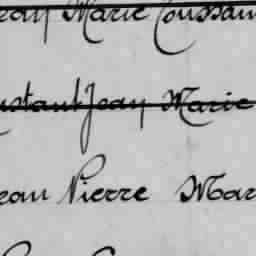 ean Marie Toussain
ustant Jean Marie
ean Pierre Mar